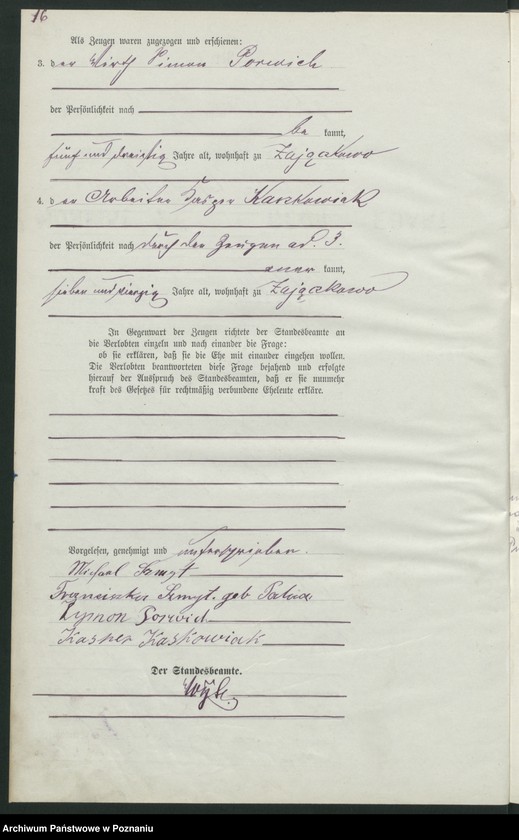 16
Als Zeugen waren zugezogen und erschienen:
3. der Wirth Simon Porwich
der Persönlichkeit nach
be kannt,
fünf und dreißig Jahre alt, wohnhaft zu Zajączkowo
4. der Arbeiter Kasper Karzkowiak
der Persönlichkeit nach durch den Zeugen ad. 3.
aner kannt,
sieben und vierzig Jahre alt, wohnhaft zu Zajączkowo
In Gegenwart der Zeugen richtete der Standesbeamte an
die Verlobten einzeln und nach einander die Frage:
ob sie erklären, daß sie die Ehe mit einander eingehen wollen.
Die Verlobten beantworteten diese Frage bejahend und erfolgte
hierauf der Ausspruch des Standesbeamten, daß er sie nunmehr
kraft des Gesetzes für rechtmäßig verbundene Eheleute erkläre.
Vorgelesen, genehmigt und unterschrieben.
Michael Szmyt
Franciszka Szmyt. geb
Szymon Porwich
Kasper Kaskowiak
Der Standesbeamte.
Archiwum Państwowe w Poznaniu